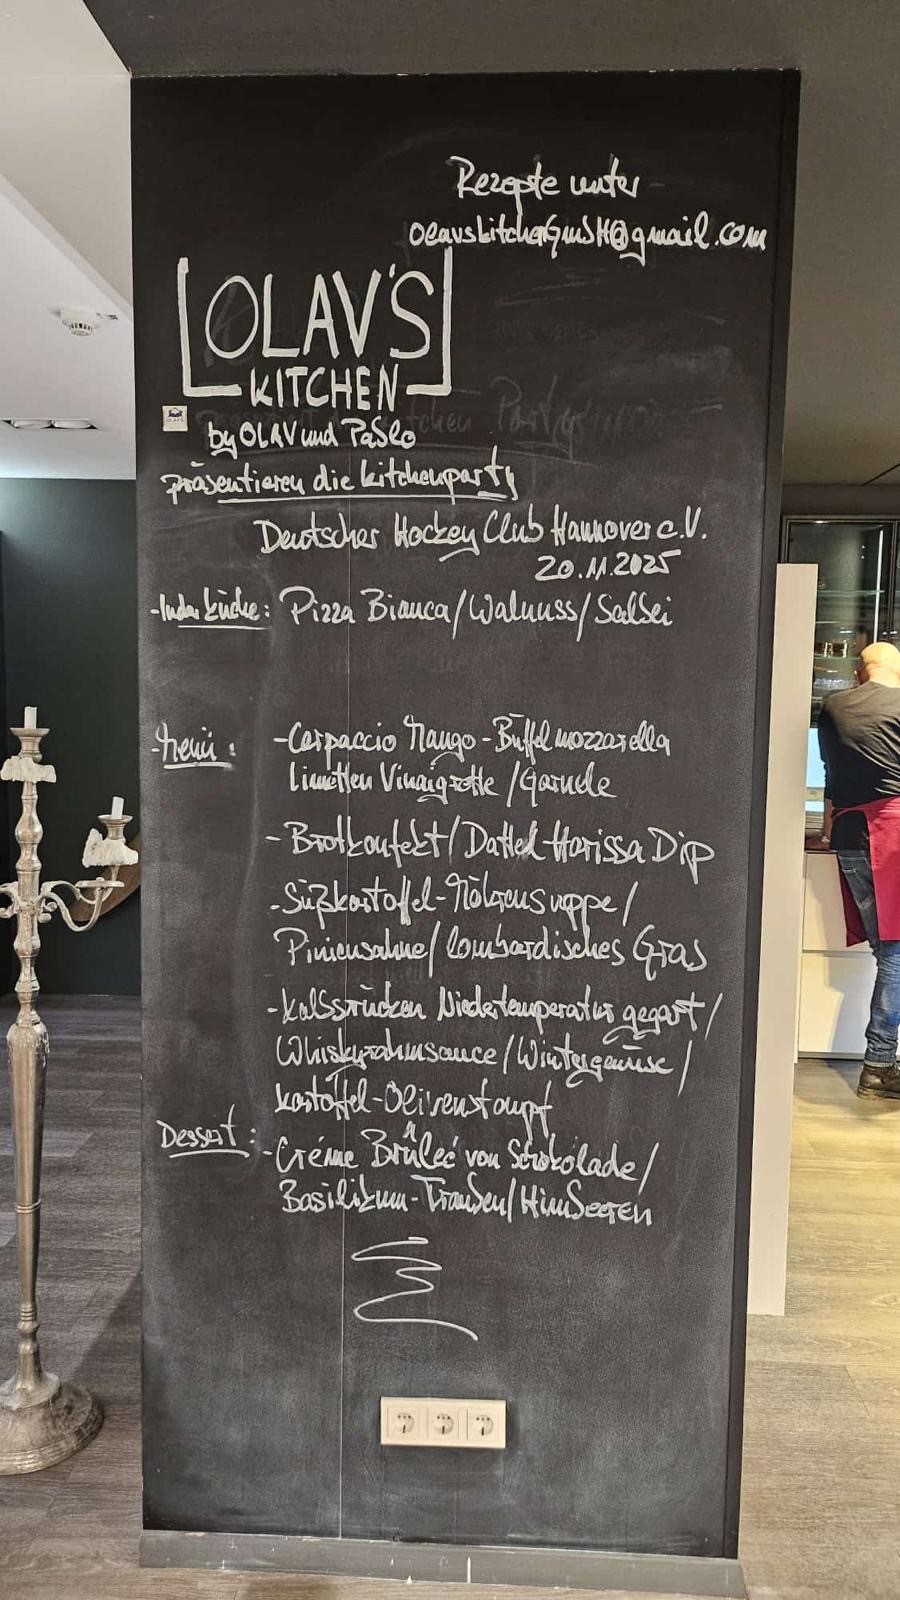 Rezepte unter
olavskitchenGmbH@gmail.com
OLAV'S
KITCHEN
by OLAV und Pablo
präsentieren die Kitchenparty
Deutscher Hockey Club Hannover e.V.
20.11.2025
-In der Küche: Pizza Bianca/Walnuss/Salbei
-Menü: -Carpaccio Mango-Büffelmozzarella
Limetten Vinaigrette/Garnele
-Brotkonfekt/Dattel-Harissa Dip
-Süßkartoffel-Möhrensuppe/
Piniensahne/lombardisches Gras
-Kalbsrücken Niedertemperatur gegart/
Whiskyrahmsauce/Wintergemüse/
Kartoffel-Olivenstampf
Dessert: -Créme Brûleé von Schokolade/
Basilikum-Trauben/Himbeeren